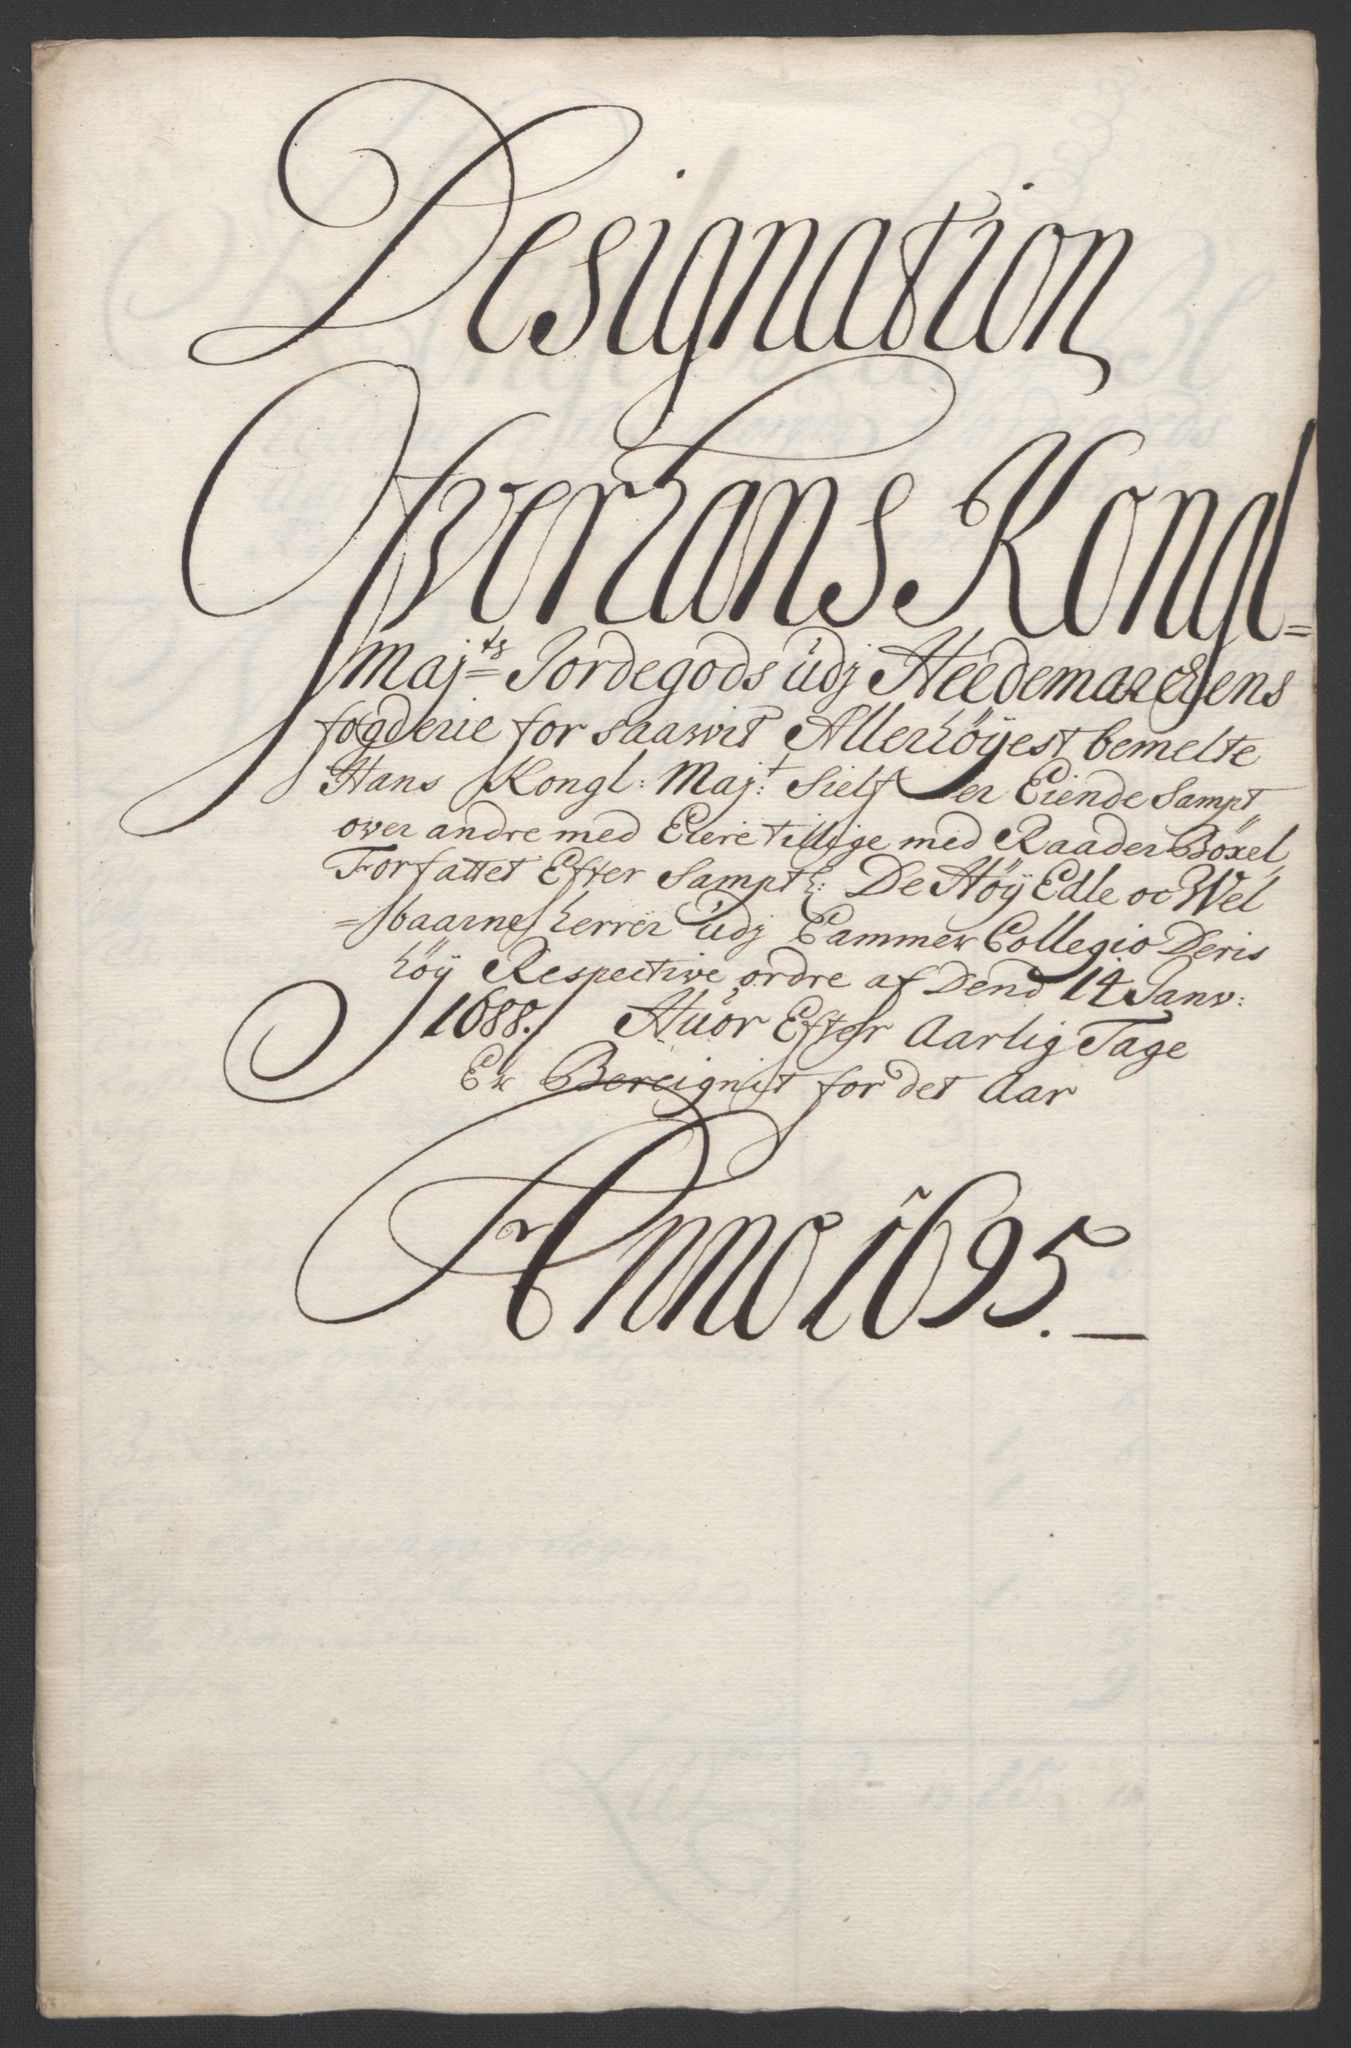 Designation
Ofwer hans Kongl=
Maj:ts Jordegods udj Heedemarchens
fogderie for saawit Allerhöyest bemelte
Hans Kongl: Maj:t Sielf er Eiende Sampt
over andre med Eiere tillige med Raader Böxel,
Forfattet Efter Sampt: De Höy Edle oc Wel
=baarne herrer udj Cammer Collegio Deris
höy Respective ordre af Dend 14 Janv:
1688. Huor Efter Aarlig Tage
Er Bereignit for det Aar
Anno 1695. —